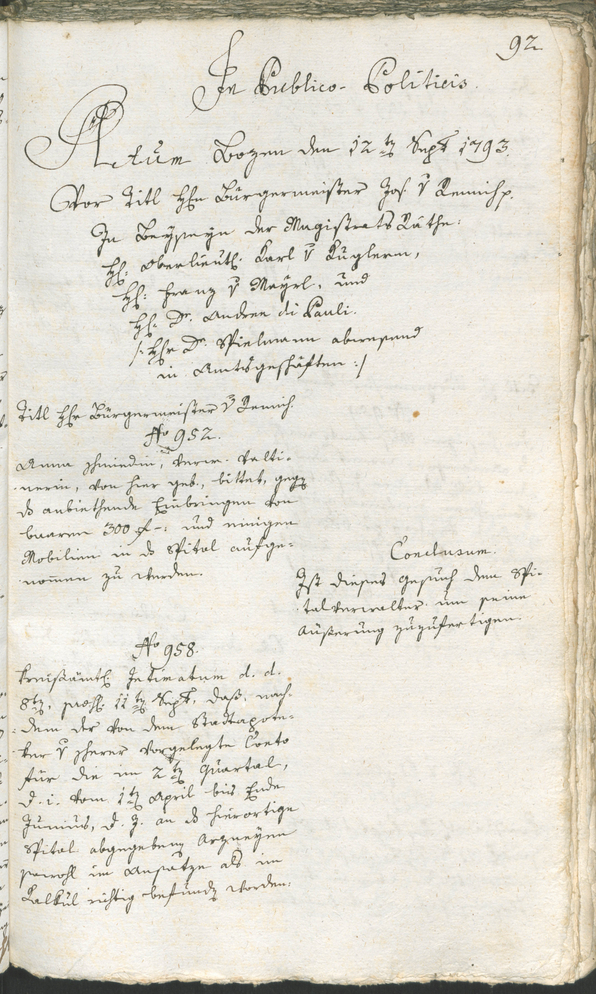 92.
In Publico-Politicis.
Actum Bozen den 12tn Septr 1793.
Vor Titl Hhn Bürgermeister Jos. v Remich p.
In Beyseyn der Magistrats Räthe:
Hh: Oberlieutt. Karl v Kuglern,
Hh: Franz v Mayrl, und
Hh: Dr. Andreä di Pauli.
/: Hhr Dr. Spielmann abwesend
in Amtsgeschäften :/
Titl Hhr Bürgermeister v Remich.
No 952.
Anna Schmiedin, verw.
nerin, von hier geb., bittet, gegen
das anbiethende Einbringen von
baaren 300 f -: und einigen
Mobilien in das Spital aufge-
nommen zu werden.
Conclusum.
Ist dieses Gesuch dem Spi-
talverwalter um seine
Äußerung zuzufertigen.
No 958.
Kreisämtl. Intimatum d. d.
8tn, præs. 11tn Sept, daß, nach-
dem der von dem Stadtapote-
ker v Scherer vorgelegte Conto
für die im 2tn Quartal,
d. i. vom 1tn April bis Ende
Junius, d. J. an das hierortige
Spital abgegebenen Arzneyen
sowohl im Ansatze als im
Kalkül richtig befunden worden: